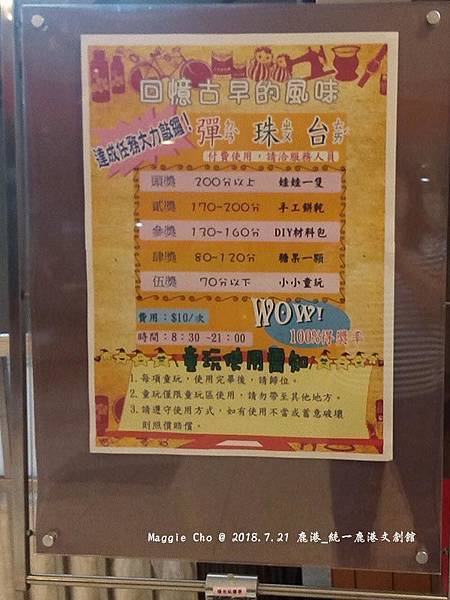 回憶古早的風味
達成任務大力敲鑼！
彈ㄉㄢˋ珠ㄓㄨ台ㄊㄞˊ
付費使用，請洽服務人員
頭獎 200分以上 娃娃一隻
貳獎 170~200分 手工餅乾
參獎 130~160分 DIY材料包
肆獎 80~120分 糖果一顆
伍獎 70分以下 小小童玩
費用：$10/次
時間：8：30~21：00
WOW!
100%得獎率
童玩使用需知
1. 每項童玩，使用完畢後，請歸位。
2. 童玩僅限童玩區使用，請勿帶至其他地方。
3. 請遵守使用方式，如有使用不當或蓄意破壞
則照價賠償。
Maggie Cho @ 2018.7.21 鹿港_統一鹿港文創館